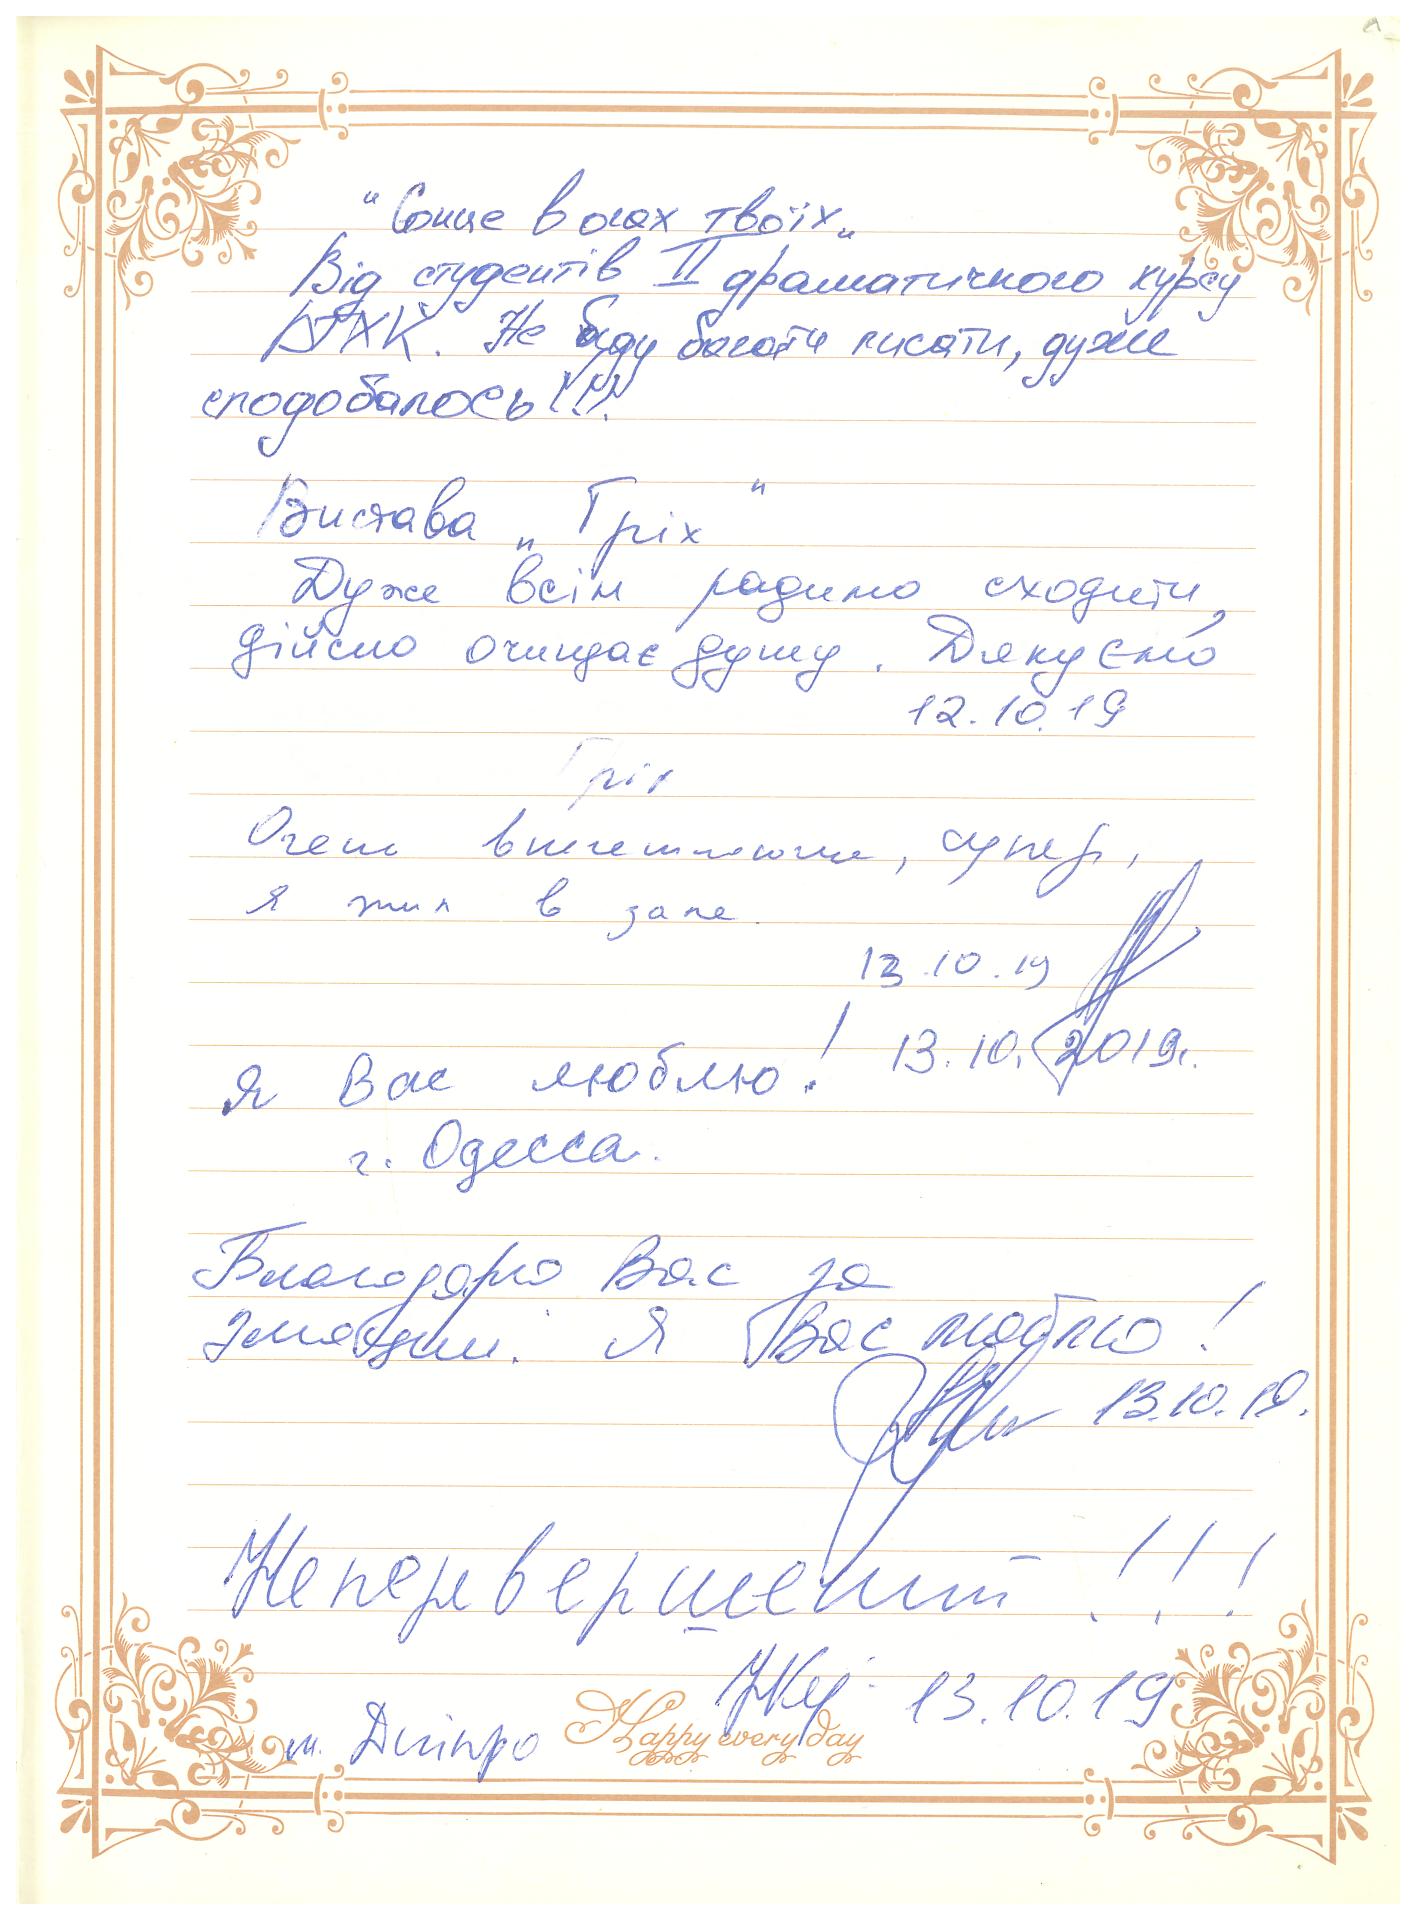 "Сонце в очах твоїх„
Від студентів II драматичного курсу
ДТХК. Не буду багато писати, дуже
сподобалось!!!
Вистава „Гріх"
Дуже всім радимо сходити,
дійсно очищає душу. Дякуємо
12.10.19
Гріх
Очень впечатляюче, супер,
я жил в зале.
13.10.19
Я Вас люблю! 13.10.2019г.
г. Одесса.
Благодарю Вас за
эмоции. Я Вас люблю!
13.10.19.
Неперевершений!!!
13.10.19
м. Дніпро
Happy every day